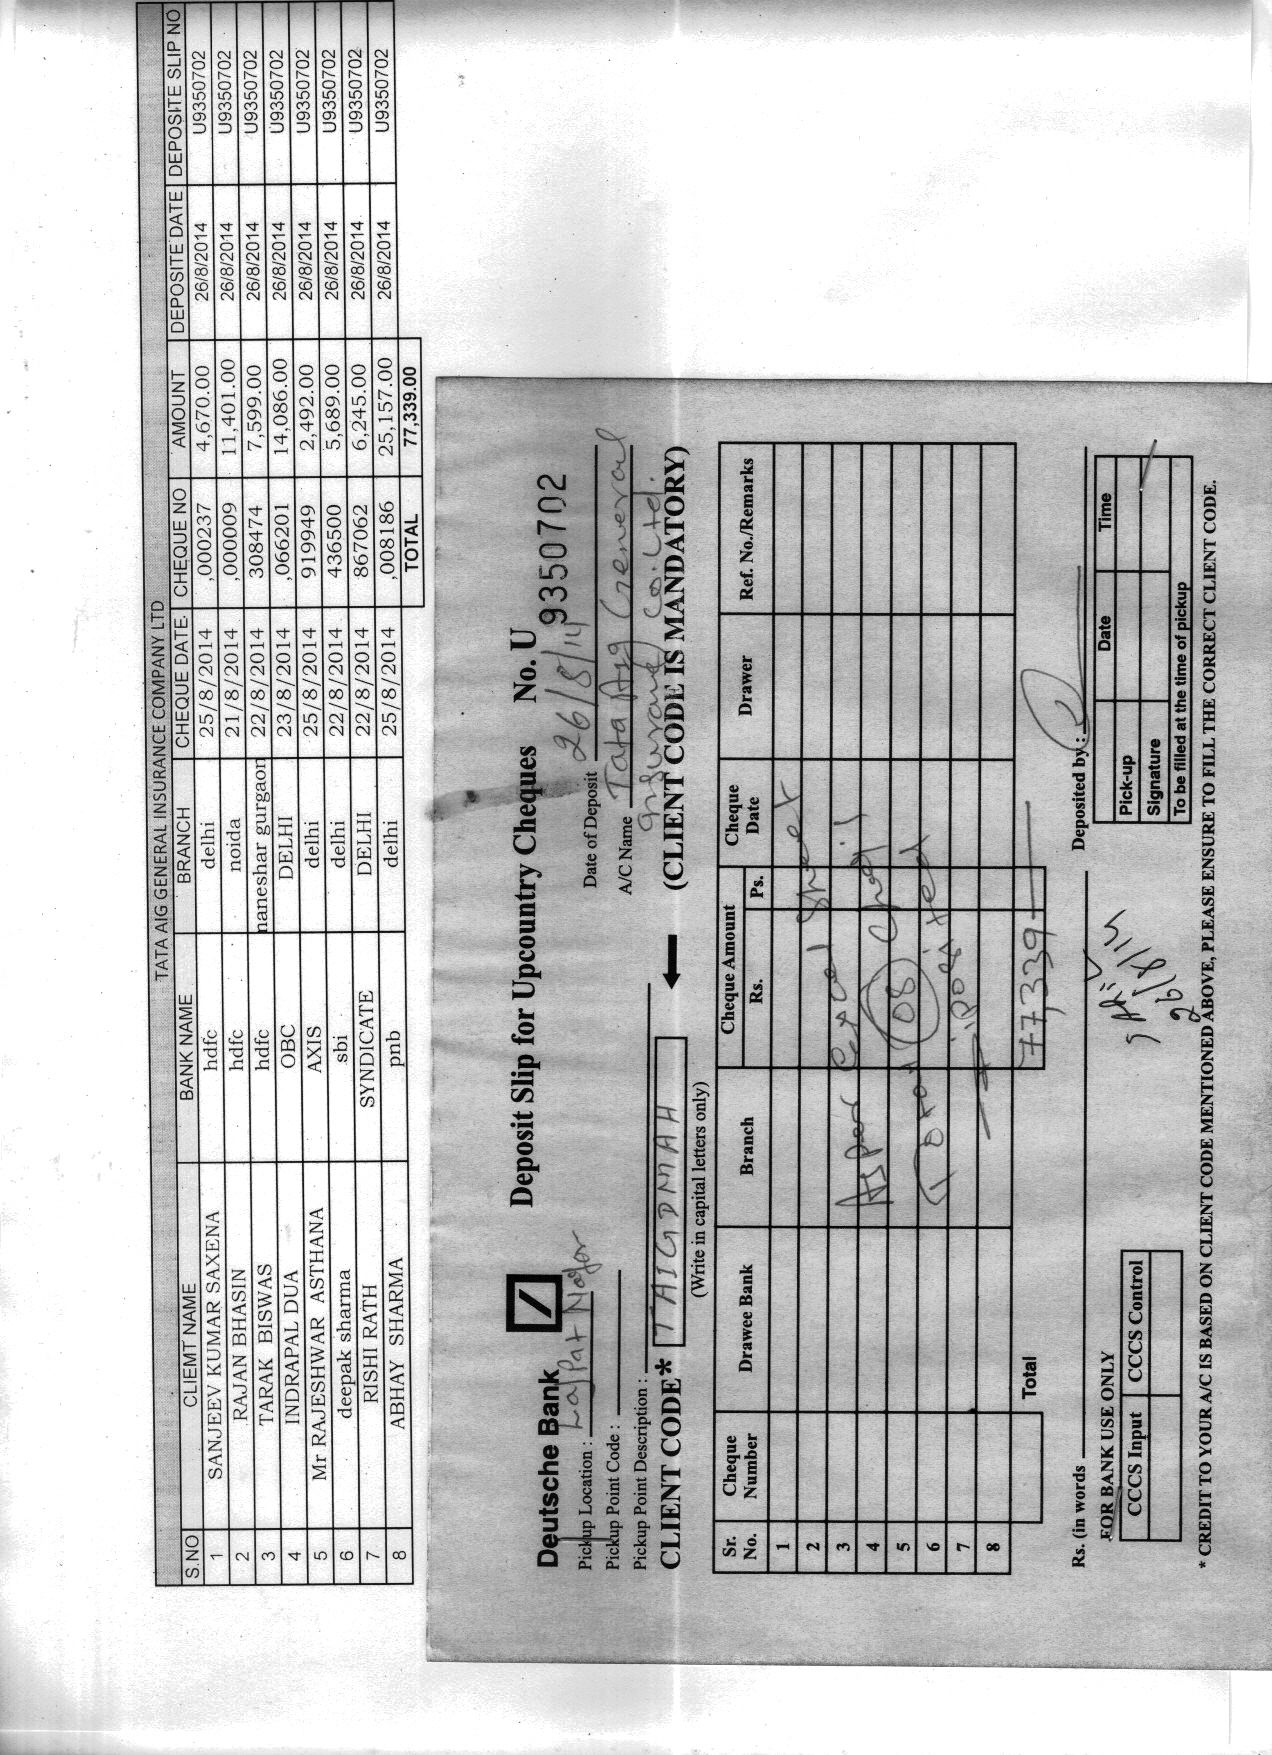 TATA AIG GENERAL INSURANCE COMPANY LTD
S.NO CLIEMT NAME BANK NAME BRANCH CHEQUE DATE. CHEQUE NO AMOUNT DEPOSITE DATE DEPOSITE SLIP NO
1 SANJEEV KUMAR SAXENA hdfc delhi 25/8/2014 ,000237 4,670.00 26/8/2014 U9350702
2 RAJAN BHASIN hdfc noida 21/8/2014 ,000009 11,401.00 26/8/2014 U9350702
3 TARAK BISWAS hdfc naneshar gurgaon 22/8/2014 308474 7,599.00 26/8/2014 U9350702
4 INDRAPAL DUA OBC DELHI 23/8/2014 ,066201 14,086.00 26/8/2014 U9350702
5 Mr RAJESHWAR ASTHANA AXIS delhi 25/8/2014 919949 2,492.00 26/8/2014 U9350702
6 deepak sharma sbi delhi 22/8/2014 436500 5,689.00 26/8/2014 U9350702
7 RISHI RATH SYNDICATE DELHI 22/8/2014 867062 6,245.00 26/8/2014 U9350702
8 ABHAY SHARMA pnb delhi 25/8/2014 ,008186 25,157.00 26/8/2014 U9350702
TOTAL 77,339.00
Deutsche Bank Deposit Slip for Upcountry Cheques No. U 9350702
Pickup Location : Lajpat Nagar Date of Deposit 26/8/14
Pickup Point Code : A/C Name Tata Aig General
Pickup Point Description : Insurance Co. Ltd.
CLIENT CODE* TAIGDMAH (CLIENT CODE IS MANDATORY)
(Write in capital letters only)
Sr. No. Cheque Number Drawee Bank Branch Cheque Amount Rs. Ps. Cheque Date Drawer Ref. No./Remarks
1
2
3
4
5
6
7
8
As per Excel Sheet
Total 08 Chq's
Deposited
Total 77,339
Rs. (in words Deposited by :
FOR BANK USE ONLY
CCCS Input CCCS Control
26/8/14
Date Time
Pick-up
Signature
To be filled at the time of pickup
* CREDIT TO YOUR A/C IS BASED ON CLIENT CODE MENTIONED ABOVE, PLEASE ENSURE TO FILL THE CORRECT CLIENT CODE.